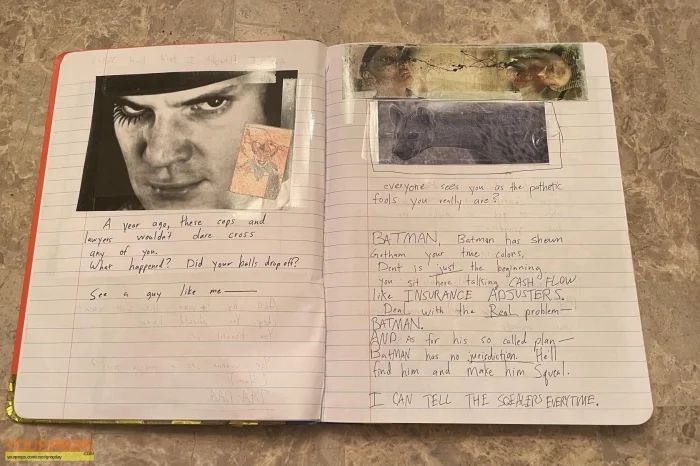 A year ago, these cops and
lawyers wouldn't dare cross
any of you.
What happened? Did your balls drop off?
See a guy like me—
everyone sees you as the pathetic
fools you really are?
BATMAN, Batman has shown
Gotham your true colors,
Dent is just the beginning
you sit here talking CASH FLOW
like INSURANCE ADJUSTERS.
Deal with the Real problem—
BATMAN.
AND As for his so called plan—
BatMAN has no jurisdiction. He'll
find him and make him Squeal.
I CAN TELL THE SQEALERS EVERYTIME.